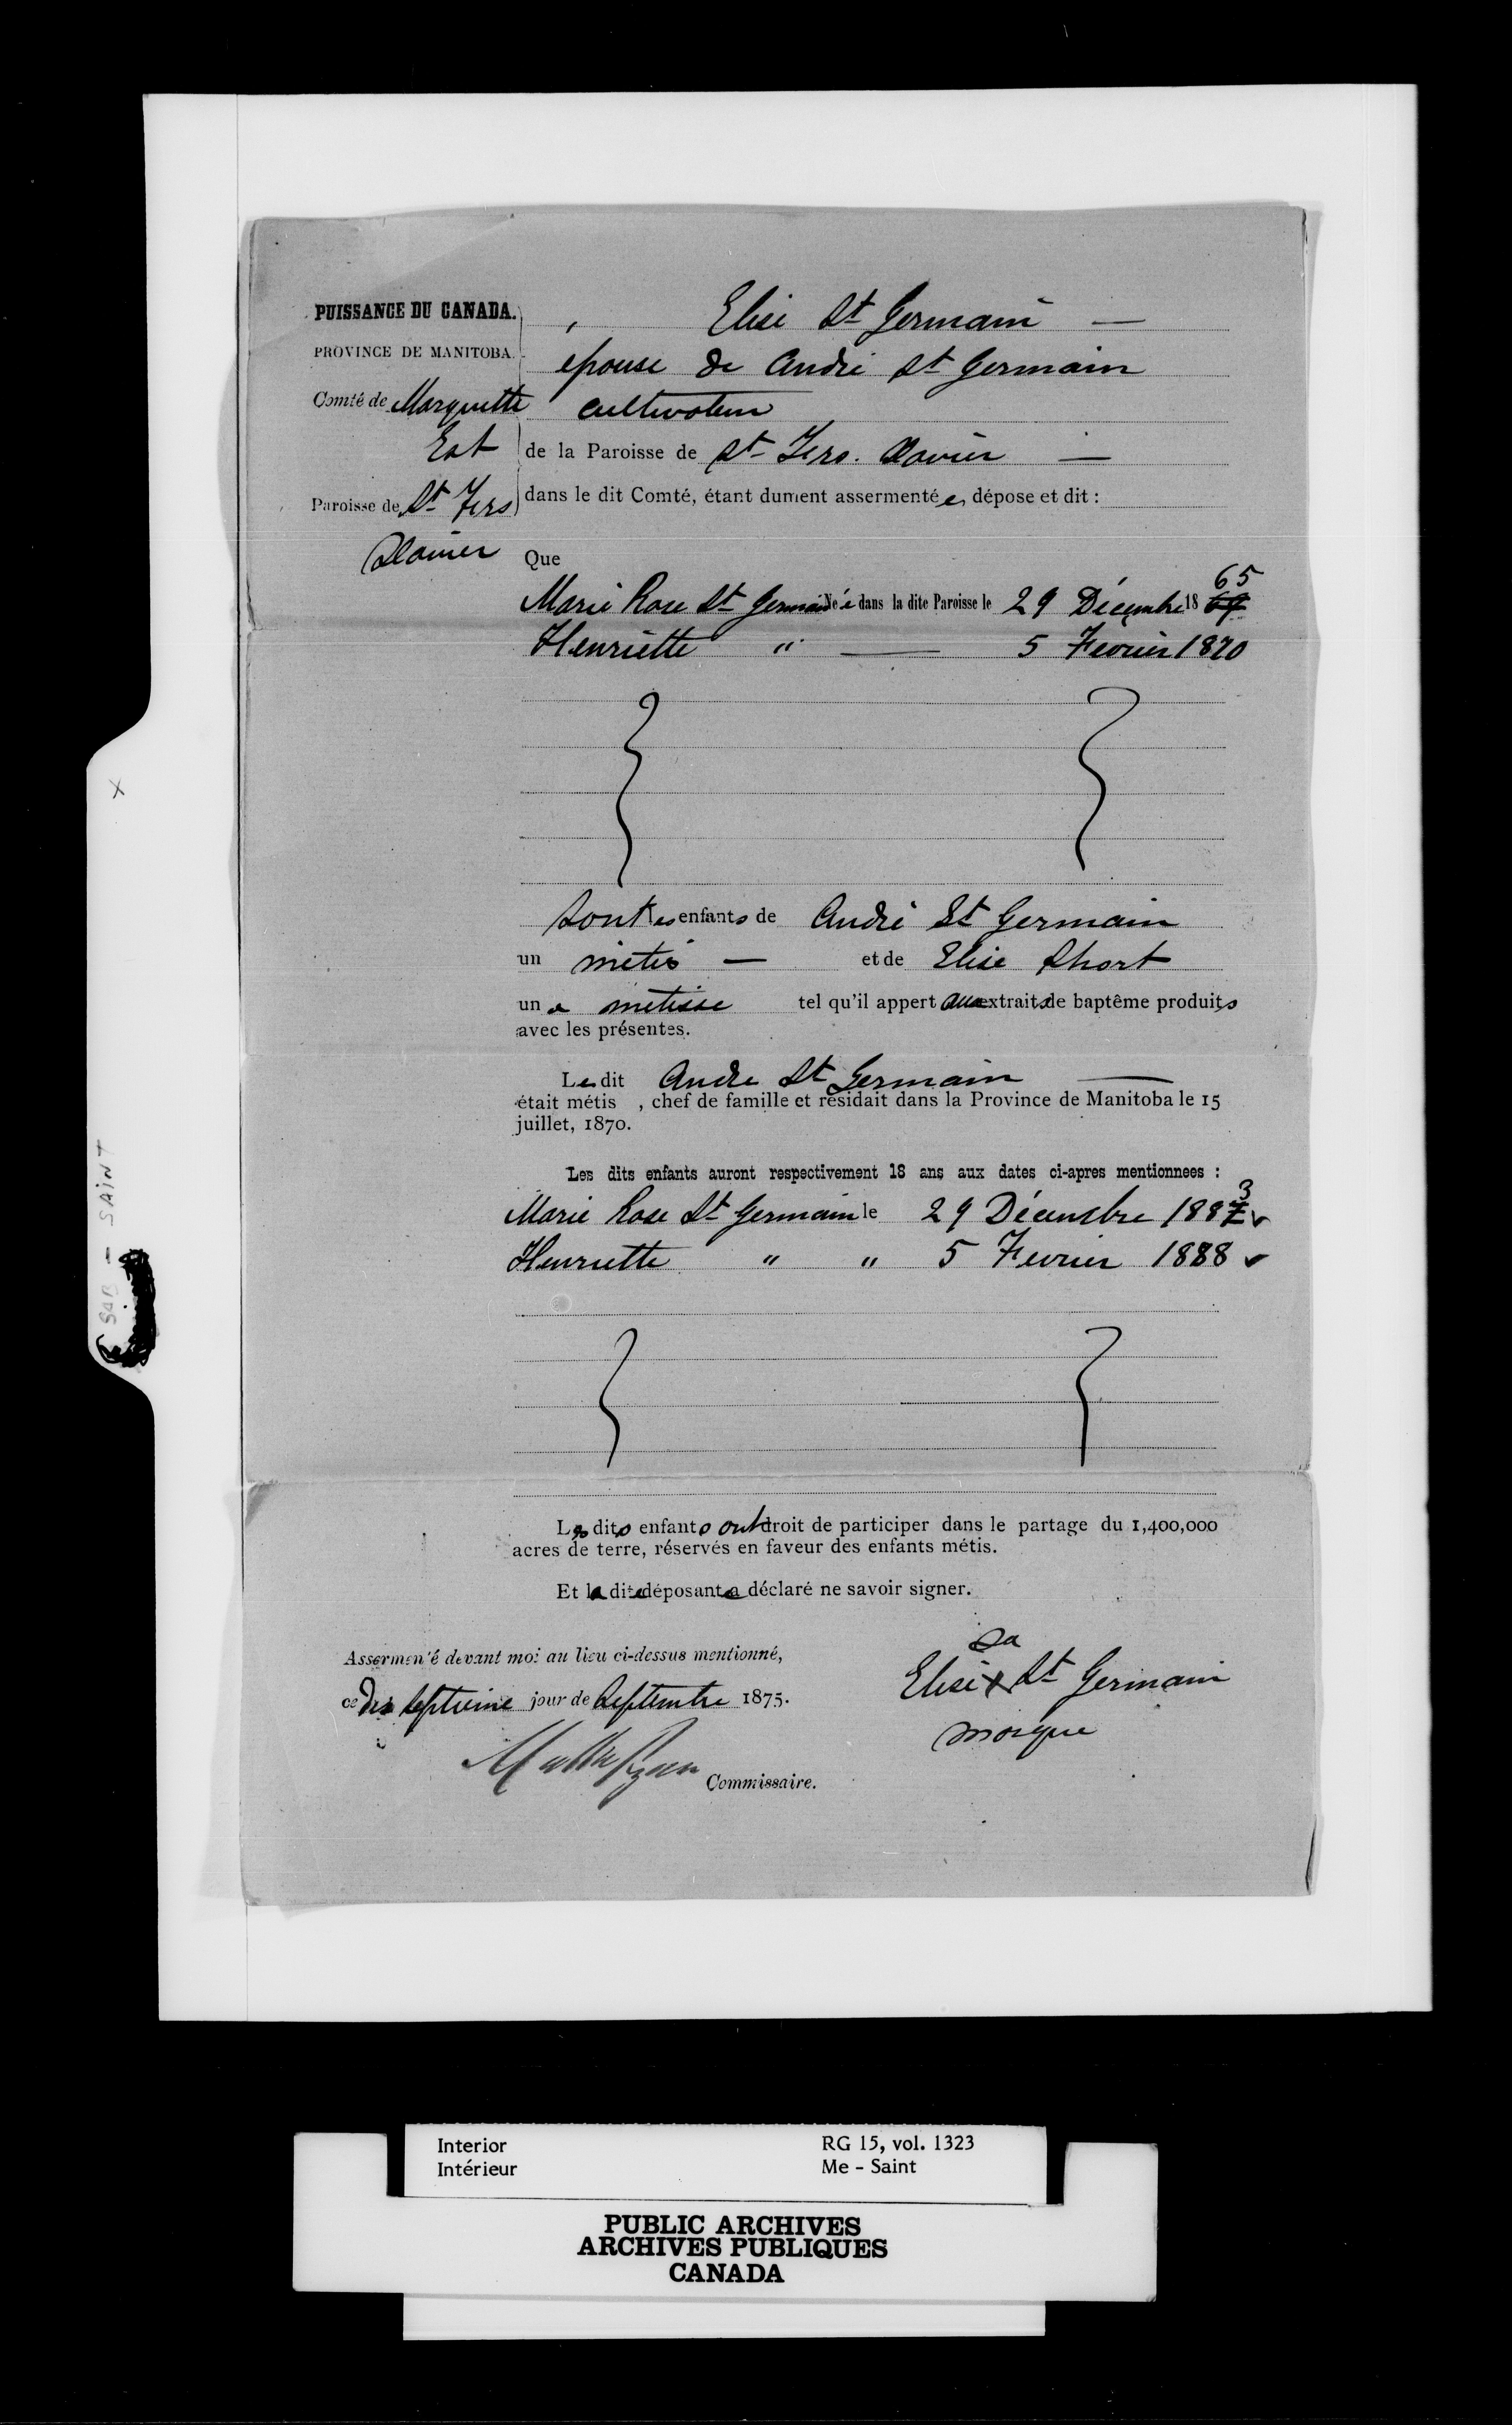 PUISSANCE DU CANADA.
PROVINCE DE MANITOBA.
Comté de Marquette
Est
Paroisse de St Frs
Xavier
Elise St Germain —
epouse de André St Germain
cultivateur
de la Paroisse de St Frs. Xavier —
dans le dit Comté, étant dument assermentée, dépose et dit :
Que
Marie Rose St Germain Née dans la dite Paroisse le 29 Décembre 18 69 65
Henriette " — 5 Fevrier 1870
sont les enfants de André St Germain
un métis — et de Elise Short
une métisse tel qu'il appert aux extraits de baptême produits
avec les présentes.
Le dit Andre St Germain —
était métis , chef de famille et résidait dans la Province de Manitoba le 15
juillet, 1870.
Les dits enfants auront respectivement 18 ans aux dates ci-apres mentionnees :
Marie Rose St Germain le 29 Décembre 1887 3
Henriette " " 5 Fevrier 1888
Les dits enfants ont droit de participer dans le partage du 1,400,000
acres de terre, réservés en faveur des enfants métis.
Et la dite déposante a déclaré ne savoir signer.
Assermenté devant moi au lieu ci-dessus mentionné,
ce dix septieme jour de Septembre 1875.
Commissaire.
sa
Elise x St Germain
marque
x
SAB - SAINT
Interior
Intérieur
RG 15, vol. 1323
Me - Saint
PUBLIC ARCHIVES
ARCHIVES PUBLIQUES
CANADA